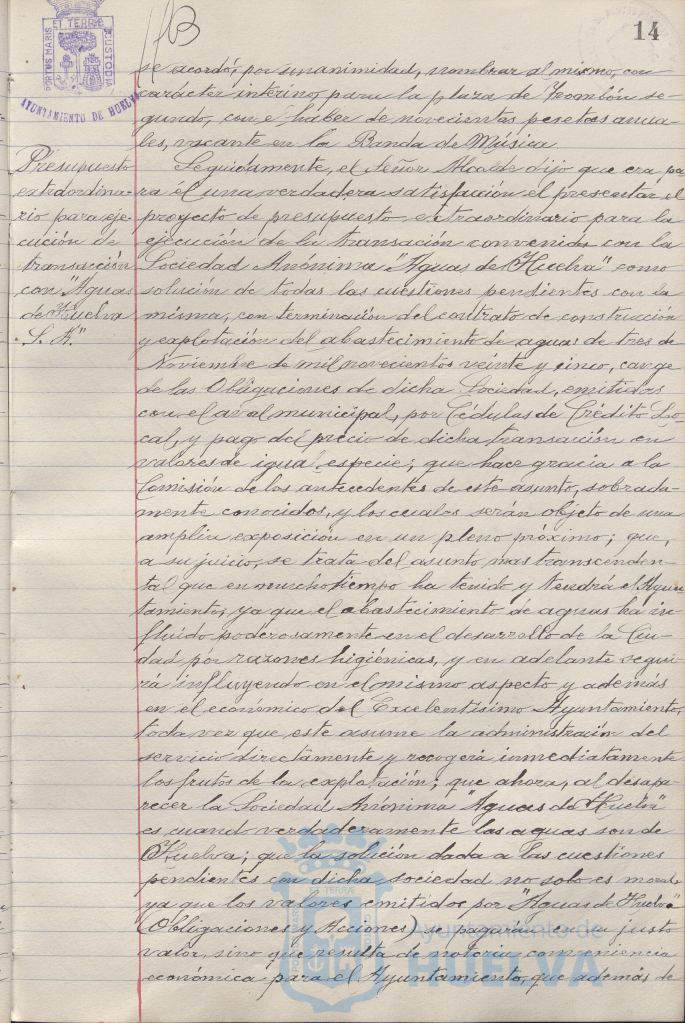 14
PORTUS MARIS ET TERRÆ CUSTODIA
AYUNTAMIENTO DE HUELVA
se acordó, por unanimidad, nombrar al mismo, con
carácter interino para la plaza de Trombón se-
gundo, con el haber de novecientas pesetas anua-
les, vacante en la Banda de Música.
Presupuesto
extraordina-
rio para eje-
cución de
transacción
con "Aguas
de Huelva
S. A."
Seguidamente, el Señor Alcalde dijo que era pa-
ra el una verdadera satisfacción el presentar el
proyecto de presupuesto extraordinario para la
ejecución de la transación convenida con la
Sociedad Anónima "Aguas de Huelva" como
solución de todas las cuestiones pendientes con la
misma, con terminación del contrato de construcción
y explotación del abastecimiento de aguas de tres de
Noviembre de mil novecientos veinte y cinco, cange
de las Obligaciones de dicha Sociedad, emitidas
con el aval municipal, por Cédulas de Crédito Lo-
cal, y pago del precio de dicha transacción en
valores de igual especie; que hace gracia a la
Comisión de los antecedentes de este asunto, sobrada-
mente conocidos, y los cuales serán objeto de una
amplia exposición en un pleno próximo; que,
a su juicio, se trata del asunto mas transcenden-
tal que en mucho tiempo ha tenido y tendrá el Ayun-
tamiento, ya que el abastecimiento de aguas ha in-
fluido poderosamente en el desarrollo de la Ciu-
dad por razones higiénicas, y en adelante segui-
rá influyendo en el mismo aspecto y además
en el económico del Excelentísimo Ayuntamiento,
toda vez que este asume la administración del
servicio directamente y recogerá inmediatamente
los frutos de la explotación; que ahora, al desapa-
recer la Sociedad Anónima "Aguas de Huelva"
es cuando verdaderamente las aguas son de
Huelva; que la solución dada a las cuestiones
pendientes con dicha sociedad no solo es moral,
ya que los valores emitidos por "Aguas de Huelva"
(Obligaciones y Acciones) se pagarán en su justo
valor, sino que resulta de notoria conveniencia
económica para el Ayuntamiento, que además de
Ayuntamiento de
HUELVA